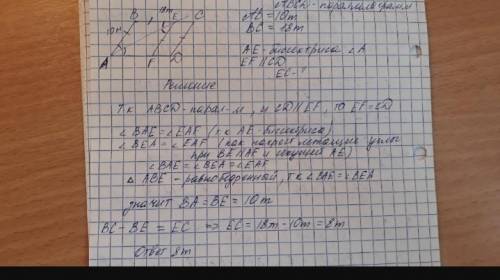 B 18m E C
10м
A F D
ABCD - параллелограмм
AB = 10m
BC = 18m
AE - биссектриса ∠A
EF || CD
EC - ?
Решение
Т.к ABCD - парал-м, и CD || EF, то EF = CD
∠BAE = ∠EAF (т.к AE - биссектриса)
∠BEA = ∠EAF (как накрест лежащие углы
при BE || AF и секущей AE)
∠BAE = ∠BEA = ∠EAF
△ ABE - равнобедренной, т.к ∠BAE = ∠BEA
значит BA = BE = 10m
BC - BE = EC => EC = 18m - 10m = 8m
Ответ 8m